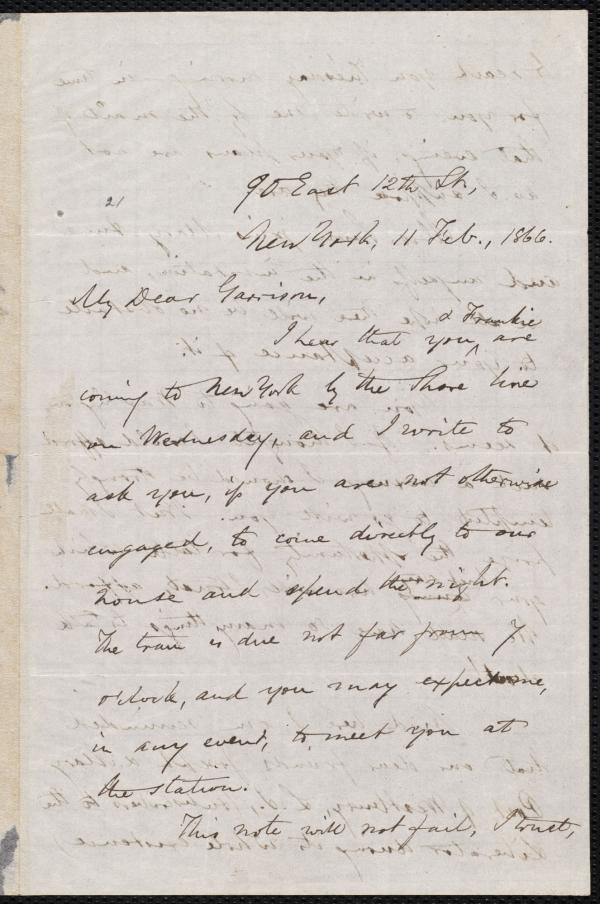 90 East 12th St.,
21
New York, 11 Feb., 1866.
My Dear Garrison,
& Frankie
I hear that you ^ are
coming to New York by the Shore line
on Wednesday, and I write to
ask you, if you are not otherwise
engaged, to come directly to our
house and spend the night.
The train is due not far from 7
o'clock, and you may expect me,
in any event, to meet you at
the station.
This note will not fail, I trust,